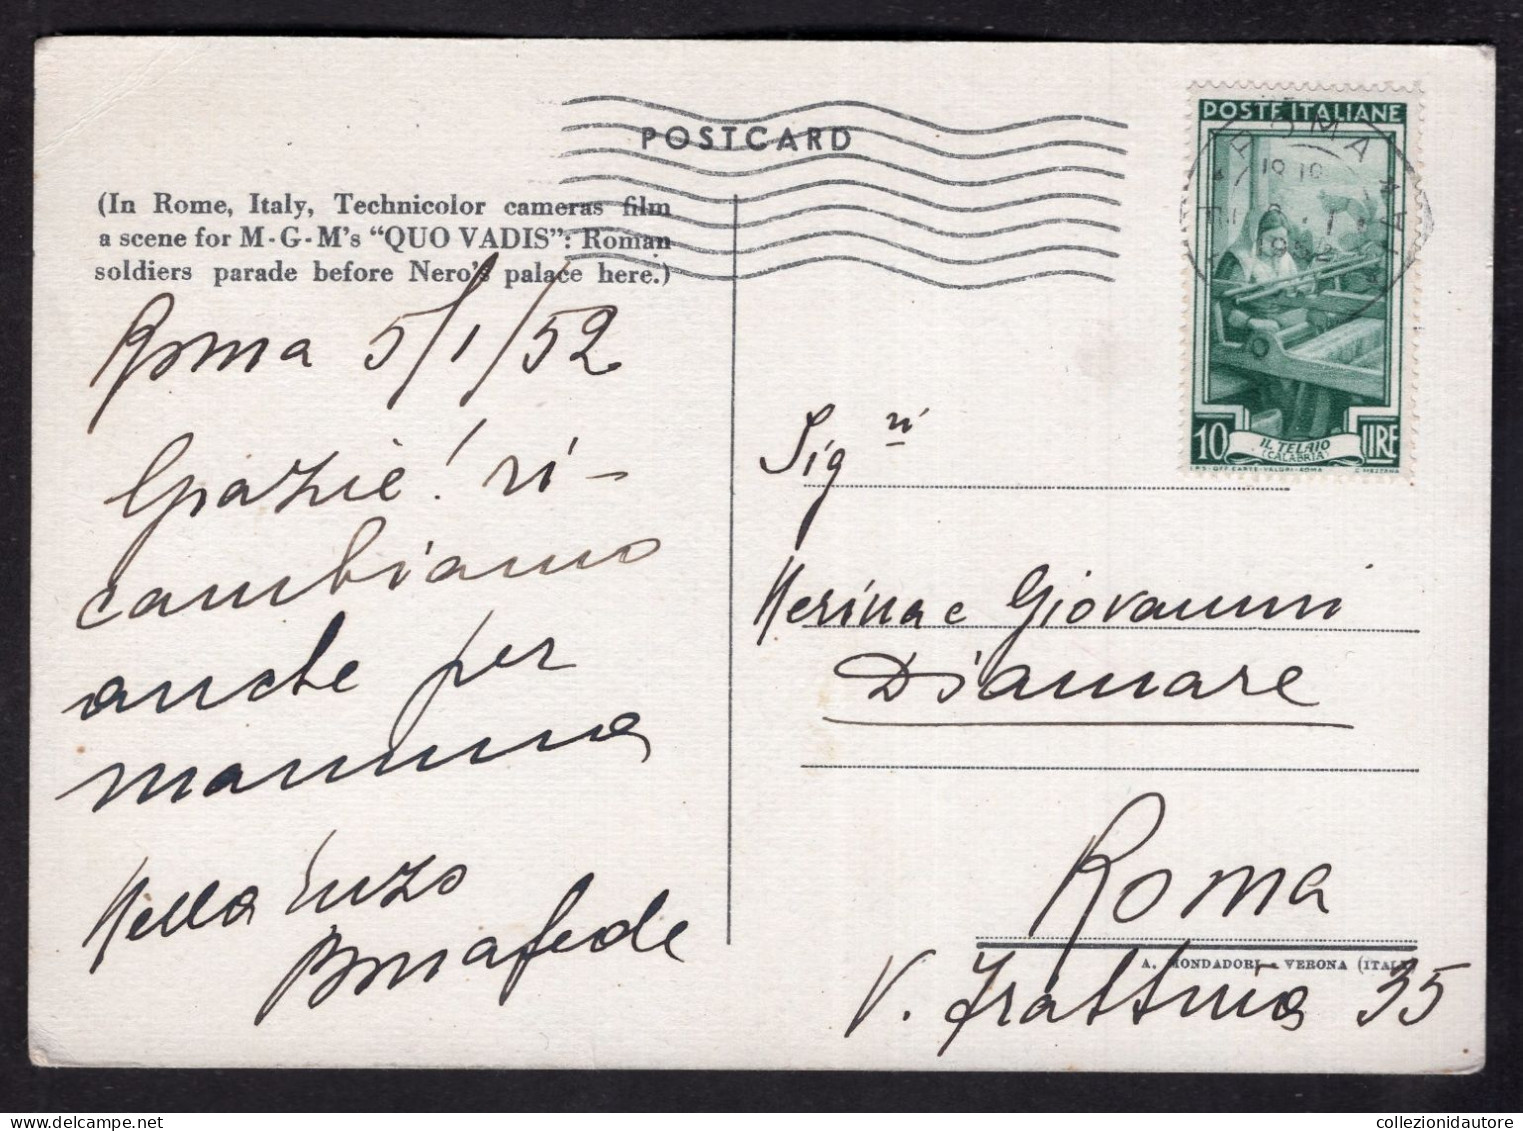 POSTCARD
(In Rome, Italy, Technicolor cameras film
a scene for M-G-M's “QUO VADIS”: Roman
soldiers parade before Nero's palace here.)
Roma 5/1/52
Grazie! ri-
cambiamo
anche per
mamma
Nella Enzo
Bonafede
POSTE ITALIANE
ROMA
1952
10 LIRE
IL TELAIO
(CALABRIA)
I.P.S.-OFF.CARTE-VALORI-ROMA
Sig ri
Nerina e Giovanni
Diamare
Roma
A. MONDADORI - VERONA (ITALY)
V. Frattina 35
collezionidautore